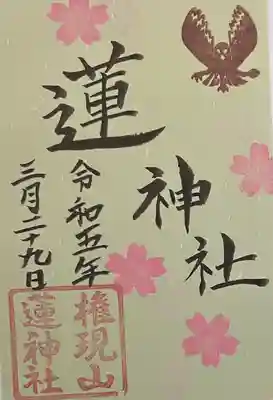 蓮
神社
令和五年
三月二十九日
権現山
蓮神社